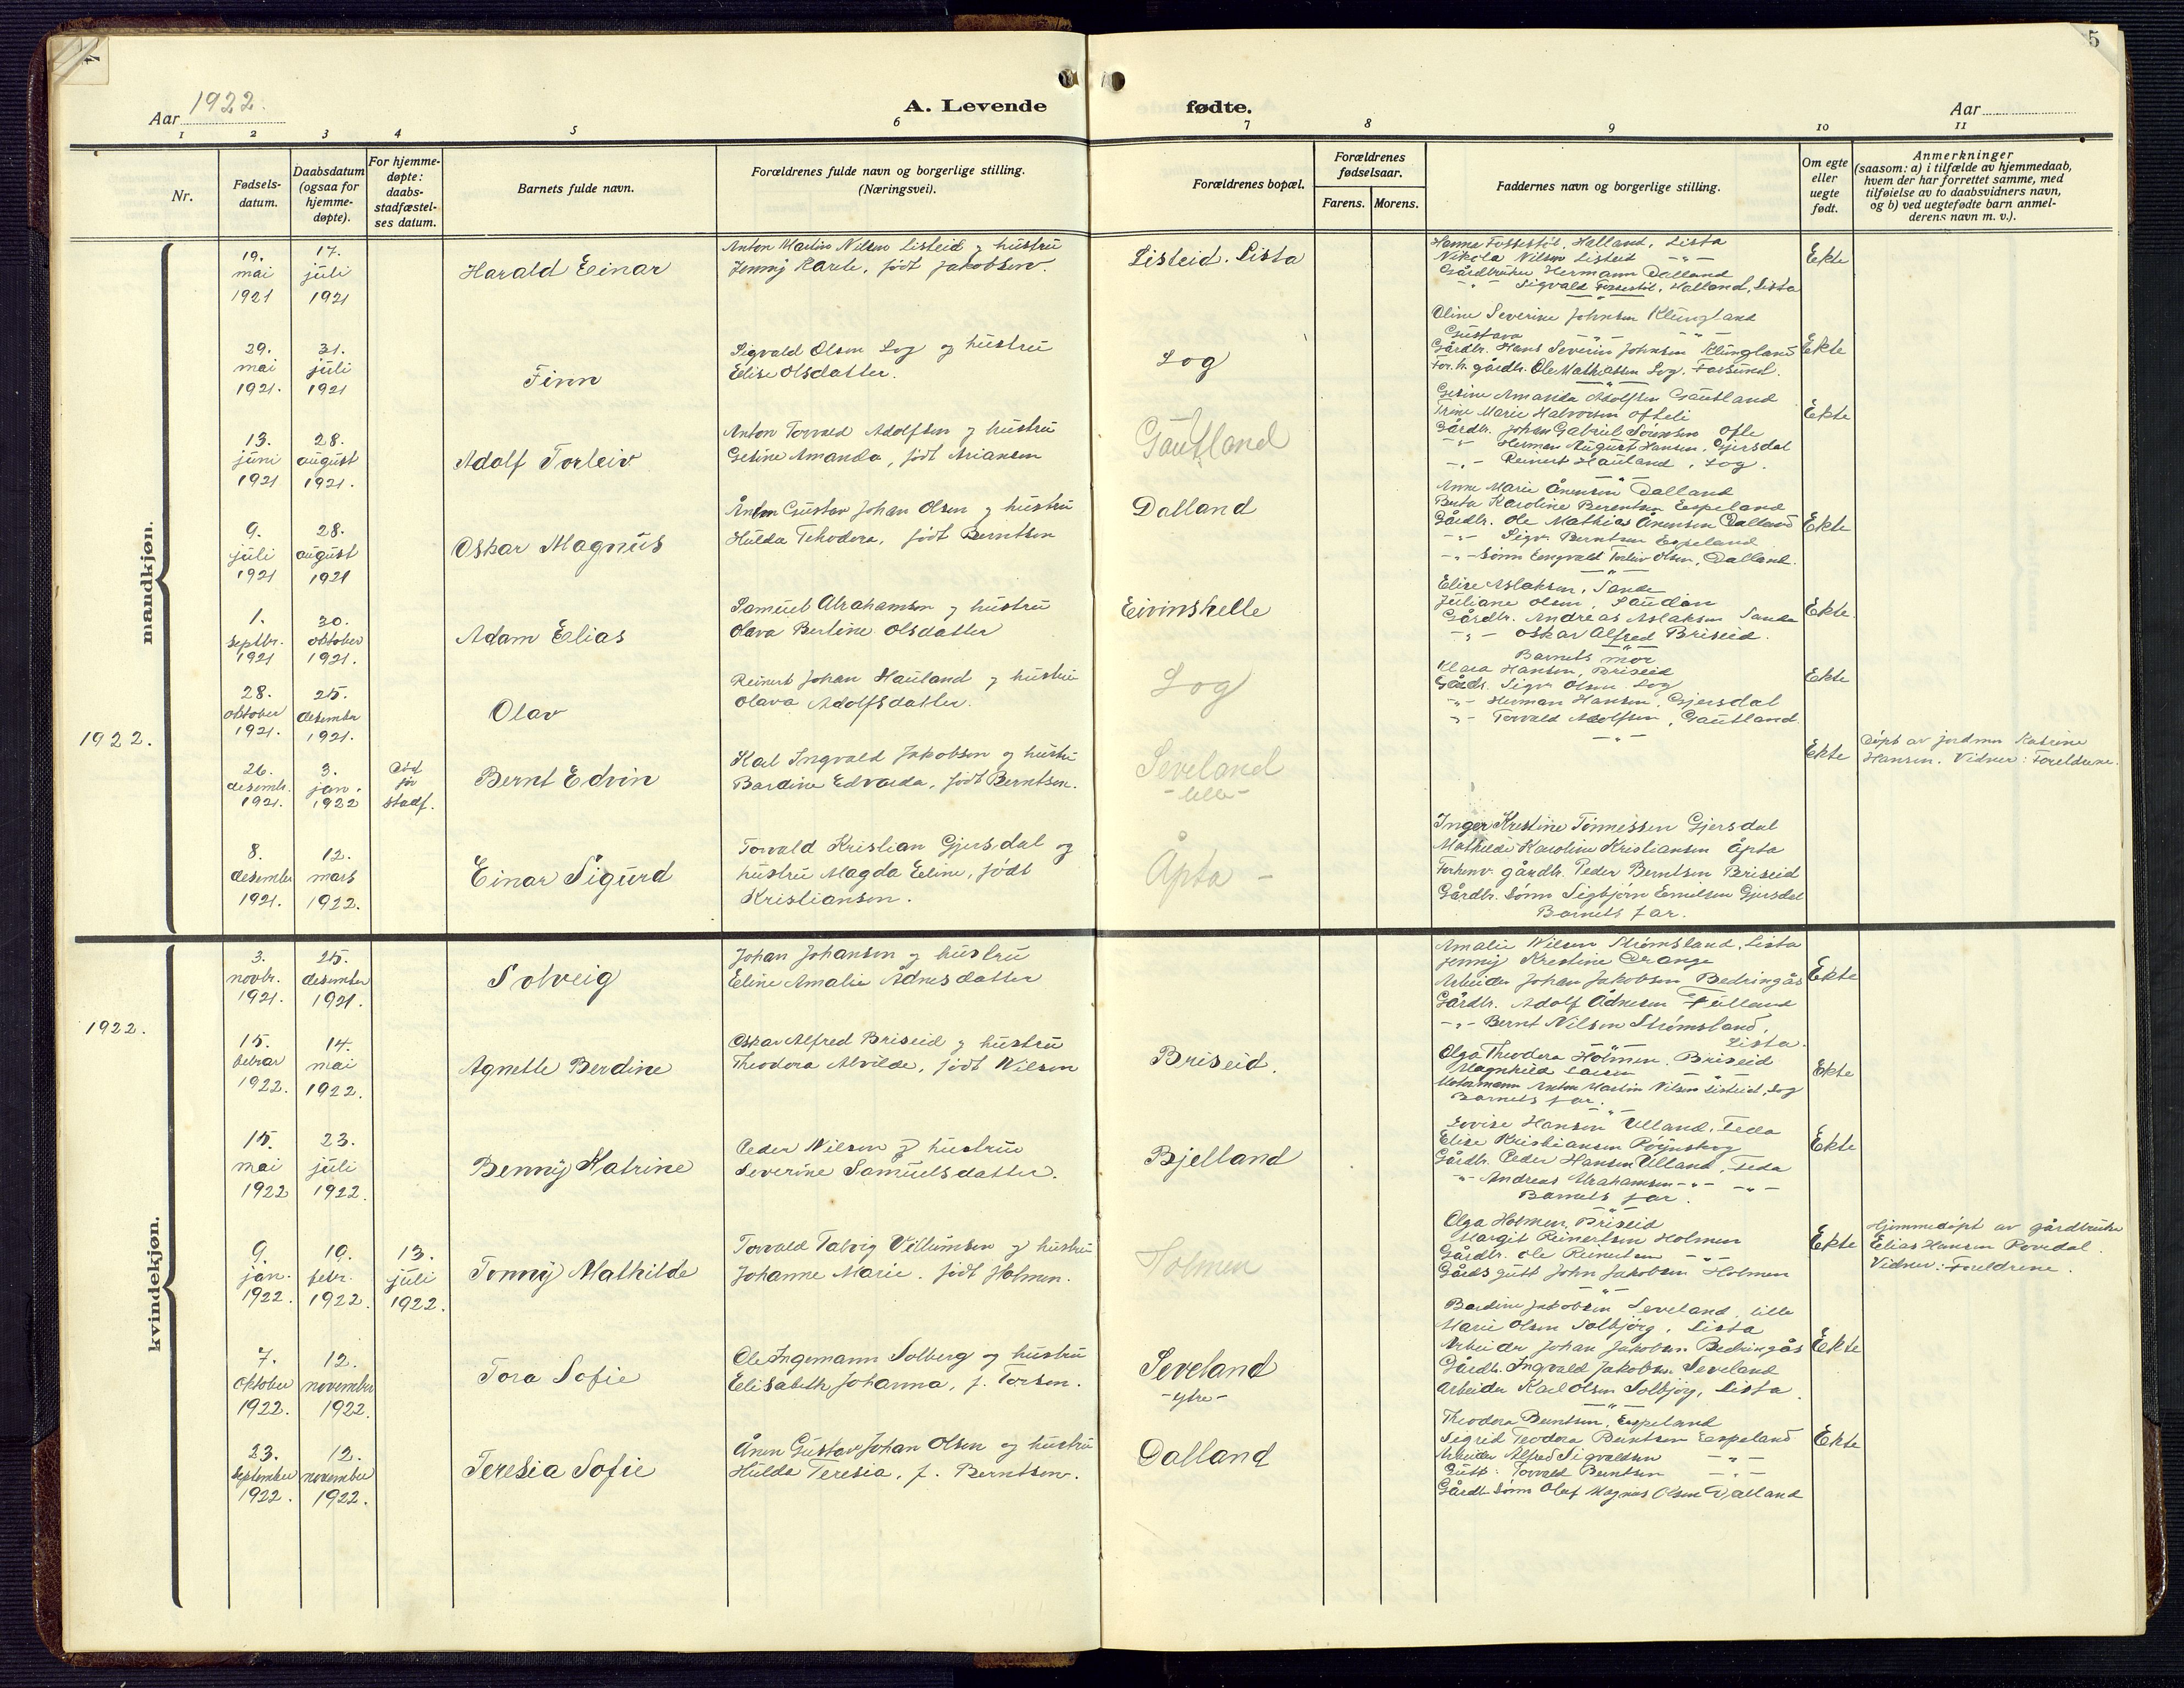 4
5
Aar 1922.
A. Levende
fødte.
Aar
1 2 3 4 5 6 7 8 9 10 11
Nr.
Fødsels-
datum.
Daabsdatum
(ogsaa for
hjemme-
døpte).
For hjemme-
døpte:
daabs-
stadfæstel-
ses datum.
Barnets fulde navn.
Forældrenes fulde navn og borgerlige stilling.
(Næringsvei).
Forældrenes bopæl.
Forældrenes
fødselsaar.
Farens. Morens.
Faddernes navn og borgerlige stilling.
Om egte
eller
uegte
født.
Anmerkninger
(saasom: a) i tilfælde av hjemmedaab,
hvem der har forrettet samme, med
tilføielse av to daabsvidners navn,
og b) ved uegtefødte barn anmel-
derens navn m. v.).
mandkjøn.
19.
mai
1921
17.
juli
1921
Harald Einar
Anton Martin Nilsen Listeid og hustru
Jenny Karele, født Jakobsen.
Listeid. Lista
Hanna Fossestøl, Halland, Lista
Nikola Nilsen Listeid -"-
Gårdbruker Hermann Dalland
-"- Sigvald Fossestøl, Halland, Lista
Ekte
29.
mai
1921.
31.
juli
1921
Finn
Sigvald Olsen Log og hustru
Elise Olsdatter.
Log
Oline Severine Johnsen Klungland
Gustava -"- -"-
Gårdbr. Hans Severin Johnsen Klungland
For.h. gårdbr. Ole Mathiassen Log. Farsund.
Ekte
13.
juni
1921
28.
august
1921.
Adolf Torleiv
Anton Torvald Adolfsen og hustru
Gesine Amanda, født Ariansen
Gautland
Gesine Amanda Adolfsen Gautland
Trine Marie Halvorsen Ofteli
Gårdbr. Johan Gabriel Sørensen Ofte
-"- Herman August Hansen, Gjersdal
-"- Reinert Hauland, Log.
Ekte
9.
juli
1921
28.
august
1921
Oskar Magnus
Ånen Gustav Johan Olsen og hustru
Hulda Tehodora, født Berntsen
Dalland
Anne Marie Ånensen Dalland
Berta Karoline Berentsen Espeland
Gårdbr. Ole Mathias Ånensen Dalland
-"- Sigv. Berntsen Espeland
-"- sønn Engvald Torleiv Olsen, Dalland.
Ekte
1.
septbr.
1921
30.
oktober
1921.
Adam Elias
Samuel Abrahamsen og hustru
Olava Bertine Olsdatter
Eivinskelle
Elise Aslaksen, Sande
Juliane Olsen, Saudån
Gårdbr. Andreas Aslaksen Sande
-"- Oskar Alfred Briseid.
Ekte.
28.
oktober
1921.
25.
desember
1921.
Olav
Reinert Johan Hauland og hustru
Olava Adolfsdatter.
Log
Barnets mor
Klara Hansen, Briseid
Gårdb. Sigv. Olsen Log
-"- Herman Hansen, Gjersdal
-"- Torvald Adolfsen, Gautland
Ekte
1922.
26.
desembr.
1921.
3.
jan.
1922
Død
før
stadf.
Bernt Edvin
Karl Ingvald Jakobsen og hustru
Bardine Edvarda, født Berntsen.
Seveland
-lille-
Ekte
Døpt av jordmor Katrine
Hansen. Vidner: Foreldrene.
8.
desember
1921.
12.
mars
1922.
Einar Sigurd
Torvald Kristian Gjersdal og
hustru Magda Eline, født
Kristiansen.
Åpta -
Inger Kristine Tønnessen Gjersdal
Mathilde Karoline Kristiansen Åpta
Forhenv. gårdbr. Peder Berntsen Briseid
Gårdbr. sønn Sigbjørn Emilsen Gjersdal
Barnets far.
kvindekjøn.
3.
novbr.
1921.
25.
desember
1921.
Solveig
Johan Johansen og hustru
Eline Amalie Ådnesdatter
Amalie Nilsen Strømsland, Lista
Jenny Kristine Orange
Arbeider Johan Jakobsen Bedringås
Gårdbr. Adolf Ådnesen Fulland
-"- Bernt Nilsen Strømsland,
Lista.
Ekte
1922.
15.
februar
1922.
14.
mai
1922.
Agnette Berdine
Oskar Alfred Briseid og hustru
Theodora Alvilde, født Nilsen
Briseid.
Olga Theodora Holmen, Briseid
Magnhild Larsen -"-
Motormann Anton Martin Nilsen Listeid, Log
Barnets far.
Ekte
15.
mai
1922
23.
juli
1922.
Benny Katrine
Peder Nilsen og hustru
Severine Samuelsdatter.
Bjelland
Lovise Hansen Ulland, Feda
Elise Kristiansen Røynskog
Gårdbr. Peder Hansen Ulland, Feda
-"- Andreas Abrahamsen -"- -"-
Barnets far.
Ekte
9.
jan.
1922.
19.
febr.
1922.
13.
juli
1922.
Tonny Mathilde
Torvald Talvig Villumsen og hustru
Johanne Marie, født Holmen.
Holmen
Olga Holmen, Briseid
Margit Reinertsen Holmen
Gårdbr. Ole Reinertsen -"-
Gårdsgutt John Jakobsen Holmen
Ekte
Hjemmedøpt av gårdbruker
Elias Hansen Povedal.
Vidner: Foreldrene.
7.
Oktober
1922.
12.
november
1922.
Tora Sofie
Ole Ingemann Solberg og hustru
Elisabeth Johanna, f. Torsen.
Seveland
-ytre-
Bardine Jakobsen Seveland, lille
Marie Olsen Solbjørg, Lista
Arbeider Johan Jakobsen Bedringås
Gårdbr. Ingvald Jakobsen Seveland
Arbeider Karl Olsen Solbjørg, Lista.
Ekte
23.
September
1922.
12.
november
1922.
Teresia Sofie
Ånen Gustav Johan Olsen og hustru
Hulda Teresia, f. Berntsen.
Dalland
Theodora Berntsen, Espeland
Sigrid Teodora Berntsen Espeland
Arbeider Alfred Sigvaldsen -"-
Gutt: Torvald Berntsen -"-
Gårdbr. sønn Olaf Magnus Olsen Dalland
Ekte